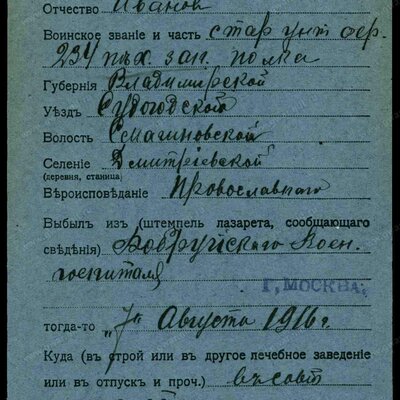 Отчество Иванов
Воинское званіе и часть стар унт офр.
234 пѣх. зап. полка
Губернія Владимирской
Уѣздъ Судогодской
Волость
Селеніе Дмитріевской
(деревня, станица)
Вѣроисповѣданіе Провославнаго
Выбылъ изъ (штемпель лазарета, сообщающаго
свѣдѣнія) Бобруйскаго Воен.
госпиталя
Г. МОСКВА.
тогда-то „7" Августа 1916 г.
Куда (въ строй или въ другое лечебное заведеніе
или въ отпускъ и проч.)